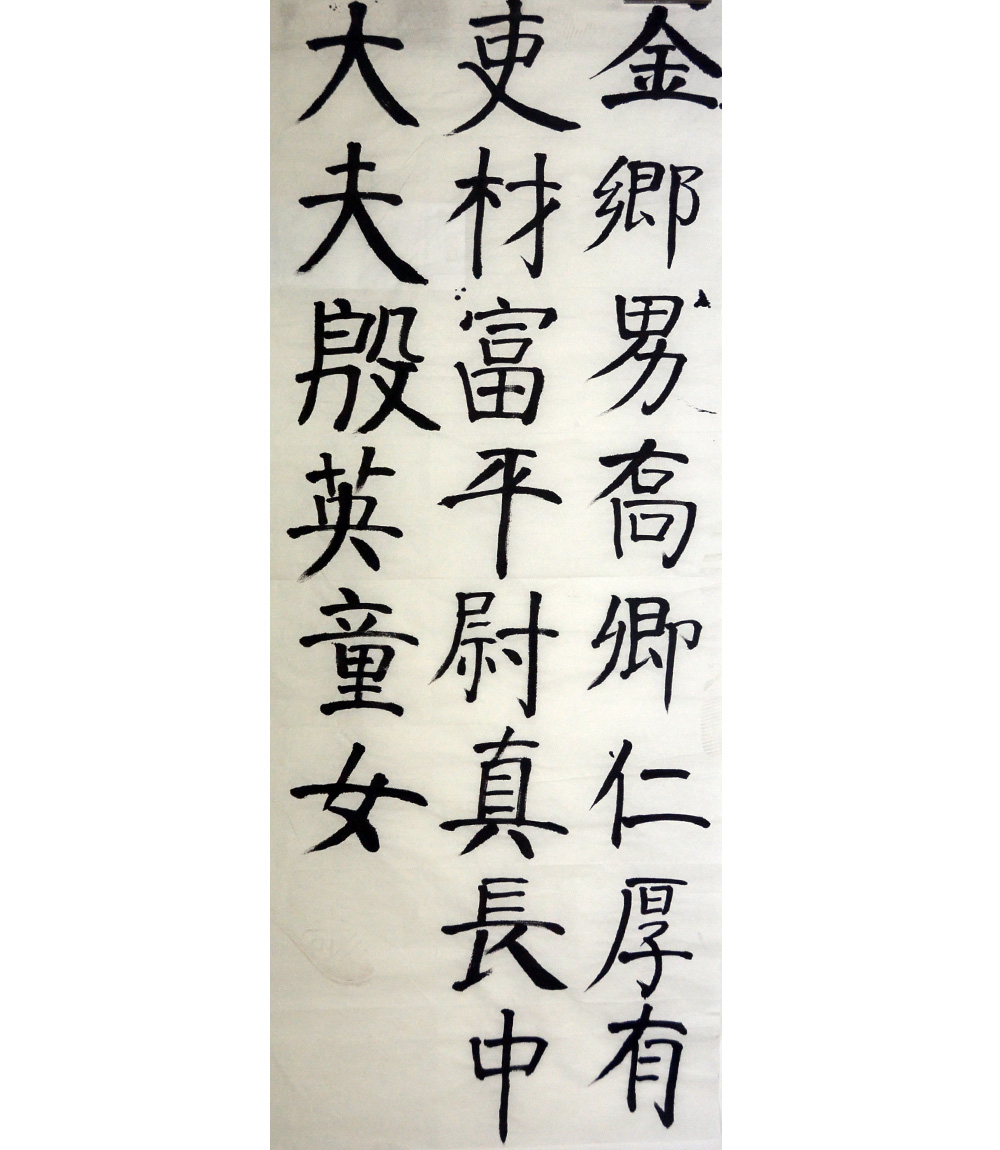 金鄉男喬卿仁厚有
吏材富平尉真長中
大夫殷英童女